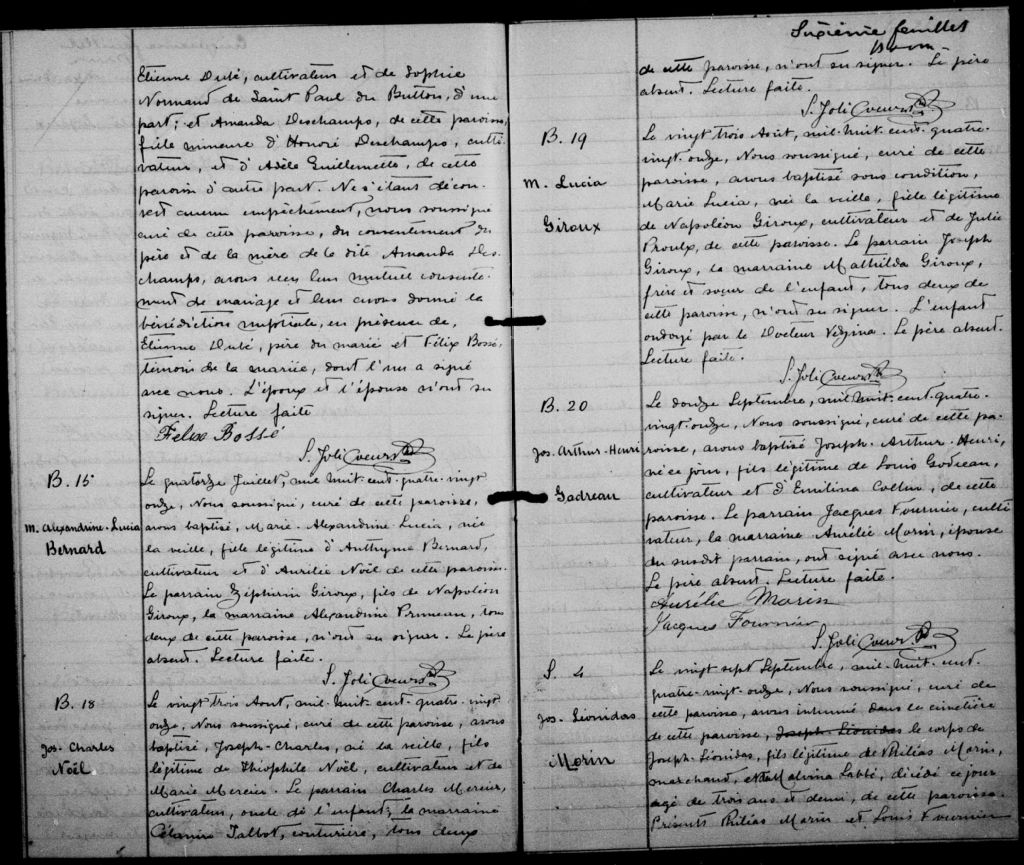 Etienne Dubé, cultivateur et de Sophie
Normand de Saint Paul du Button, d'une
part; et Amanda Deschamps, de cette paroisse,
fille mineure d'Honoré Deschamps, culti-
vateur, et d'Adèle Guillemette, de cette
paroisse d'autre part. Ne s'étant décou-
vert aucun empêchement, nous soussigné
curé de cette paroisse, du consentement du
père et de la mère de la dite Amanda Des-
champs, avons reçu leur mutuel consente-
ment de mariage et leur avons donné la
bénédiction nuptiale, en présence de,
Etienne Dubé, père du marié et Félix Bossé,
témoin de la mariée, dont l'un a signé
avec nous. L'époux et l'épouse n'ont su
signer. Lecture faite
Felix Bossé
S. Joli Coeur Ptre
B. 15
M. Alexandrine-Lucia
Bernard
Le quatorze Juillet, mil huit-cent-quatre-vingt
onze, Nous soussigné, curé de cette paroisse,
avons baptisé, Marie-Alexandrine Lucia, née
la veille, fille légitime d'Anthyme Bernard,
cultivateur et d'Aurélie Noël de cette paroisse.
Le parrain Zéphirin Giroux, fils de Napoléon
Giroux, la marraine Alexandrine Pruneau, tous
deux de cette paroisse, n'ont su signer. Le père
absent. Lecture faite.
S. Joli Coeur Ptre
B. 18
Jos-Charles
Noël
Le vingt trois Aout, mil-huit-cent-quatre-vingt
onze, Nous soussigné, curé de cette paroisse, avons
baptisé, Joseph-Charles, né la veille, fils
légitime de Théophile Noël, cultivateur et de
Marie Mercier. Le parrain Charles Mercier,
cultivateur, oncle de l'enfant; la marraine
Célanire Talbot, couturière, tous deux
Sixième feuillet
de cette paroisse, n'ont su signer. Le père
absent. Lecture faite.
S. Joli Coeur Ptre
B. 19
M. Lucia
Giroux
Le vingt trois Août, mil-huit-cent-quatre-
vingt-onze, Nous soussigné, curé de cette
paroisse, avons baptisé sous condition,
Marie Lucia, née la veille, fille légitime
de Napoléon Giroux, cultivateur et de Julie
Proulx, de cette paroisse. Le parrain Joseph
Giroux, la marraine Mathilda Giroux,
frère et soeur de l'enfant, tous deux de
cette paroisse, n'ont su signer. L'enfant
ondoyé par le Docteur Vézina. Le père absent.
Lecture faite.
S. Joli Coeur Ptre
B. 20
Jos. Arthur-Henri
Gadreau
Le douze Septembre, mil-huit-cent-quatre-
vingt-onze, Nous soussigné, curé de cette pa-
roisse, avons baptisé Joseph-Arthur-Henri,
né ce jour, fils légitime de Louis Godreau,
cultivateur et d'Emilina, de cette
paroisse. Le parrain Jacques Fournier, culti
vateur, la marraine Aurélie Morin, épouse
du susdit parrain, ont signé avec nous.
Le père absent. Lecture faite.
Aurélie Morin
Jacques Fournier
S. Joli Coeur Ptre
S. 4
Jos-Léonidas
Morin
Le vingt sept Septembre, mil-huit-cent-
quatre-vingt-onze, Nous soussigné, curé de
cette paroisse, avons inhumé dans le cimetière
de cette paroisse, Joseph Léonidas le corps de
Joseph-Léonidas, fils légitime de Philias Morin,
marchand, et de Malvina Labbé, décédé ce jour
agé de trois ans et demi, de cette paroisse.
Présents Philias Morin et Louis Fournier